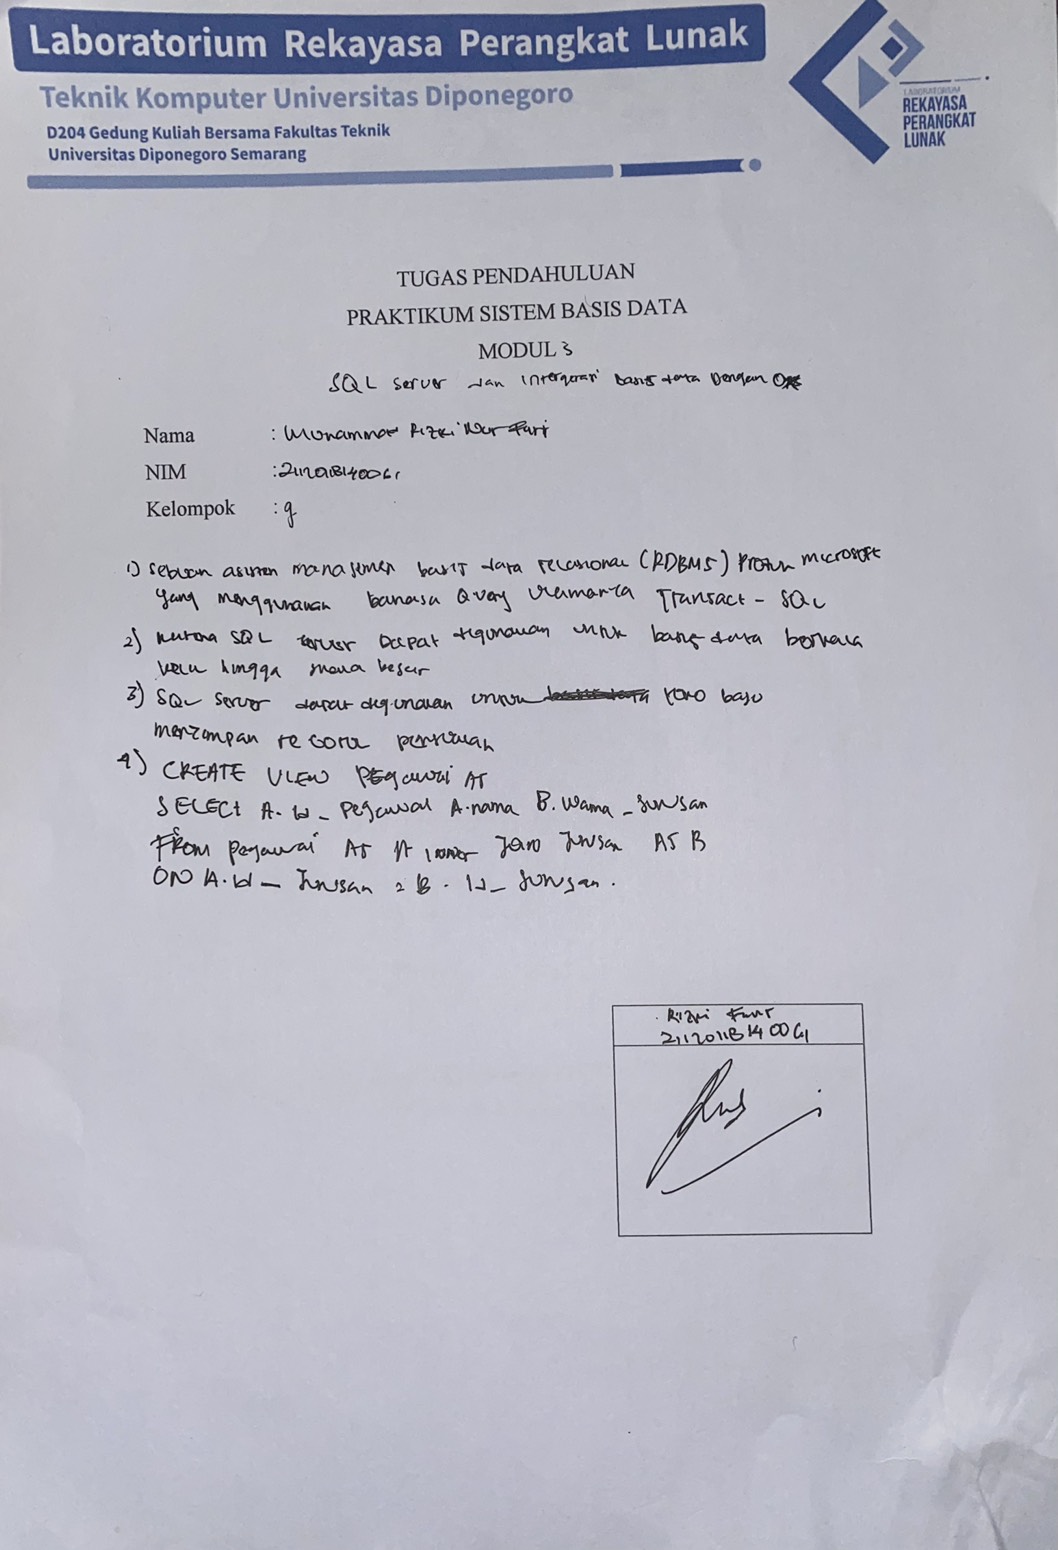 Laboratorium Rekayasa Perangkat Lunak
Teknik Komputer Universitas Diponegoro
D204 Gedung Kuliah Bersama Fakultas Teknik
Universitas Diponegoro Semarang
LABORATORIUM
REKAYASA
PERANGKAT
LUNAK
TUGAS PENDAHULUAN
PRAKTIKUM SISTEM BASIS DATA
MODUL 3
SQL Server dan Intergrasi basis data Dengan
Nama : Muhammad Rizki Nur Fajri
NIM
Kelompok : 9
1) Sebuah manajemen basis data relasional (RDBMS) Produk microsoft
yang menggunakan bahasa Query utamanya Transact - SQL
2) karena SQL server Dapat digunakan untuk basis data berskala
kecil hingga skala besar
3) SQL Server dapat digunakan untuk toko baju
menyimpan record penjualan
4) CREATE VIEW Pegawai AS
SELECT A.id_pegawai A.nama B.nama_jurusan
From pegawai AS A inner join Jurusan AS B
ON A.id_Jurusan = B.id_Jurusan.
Rizki